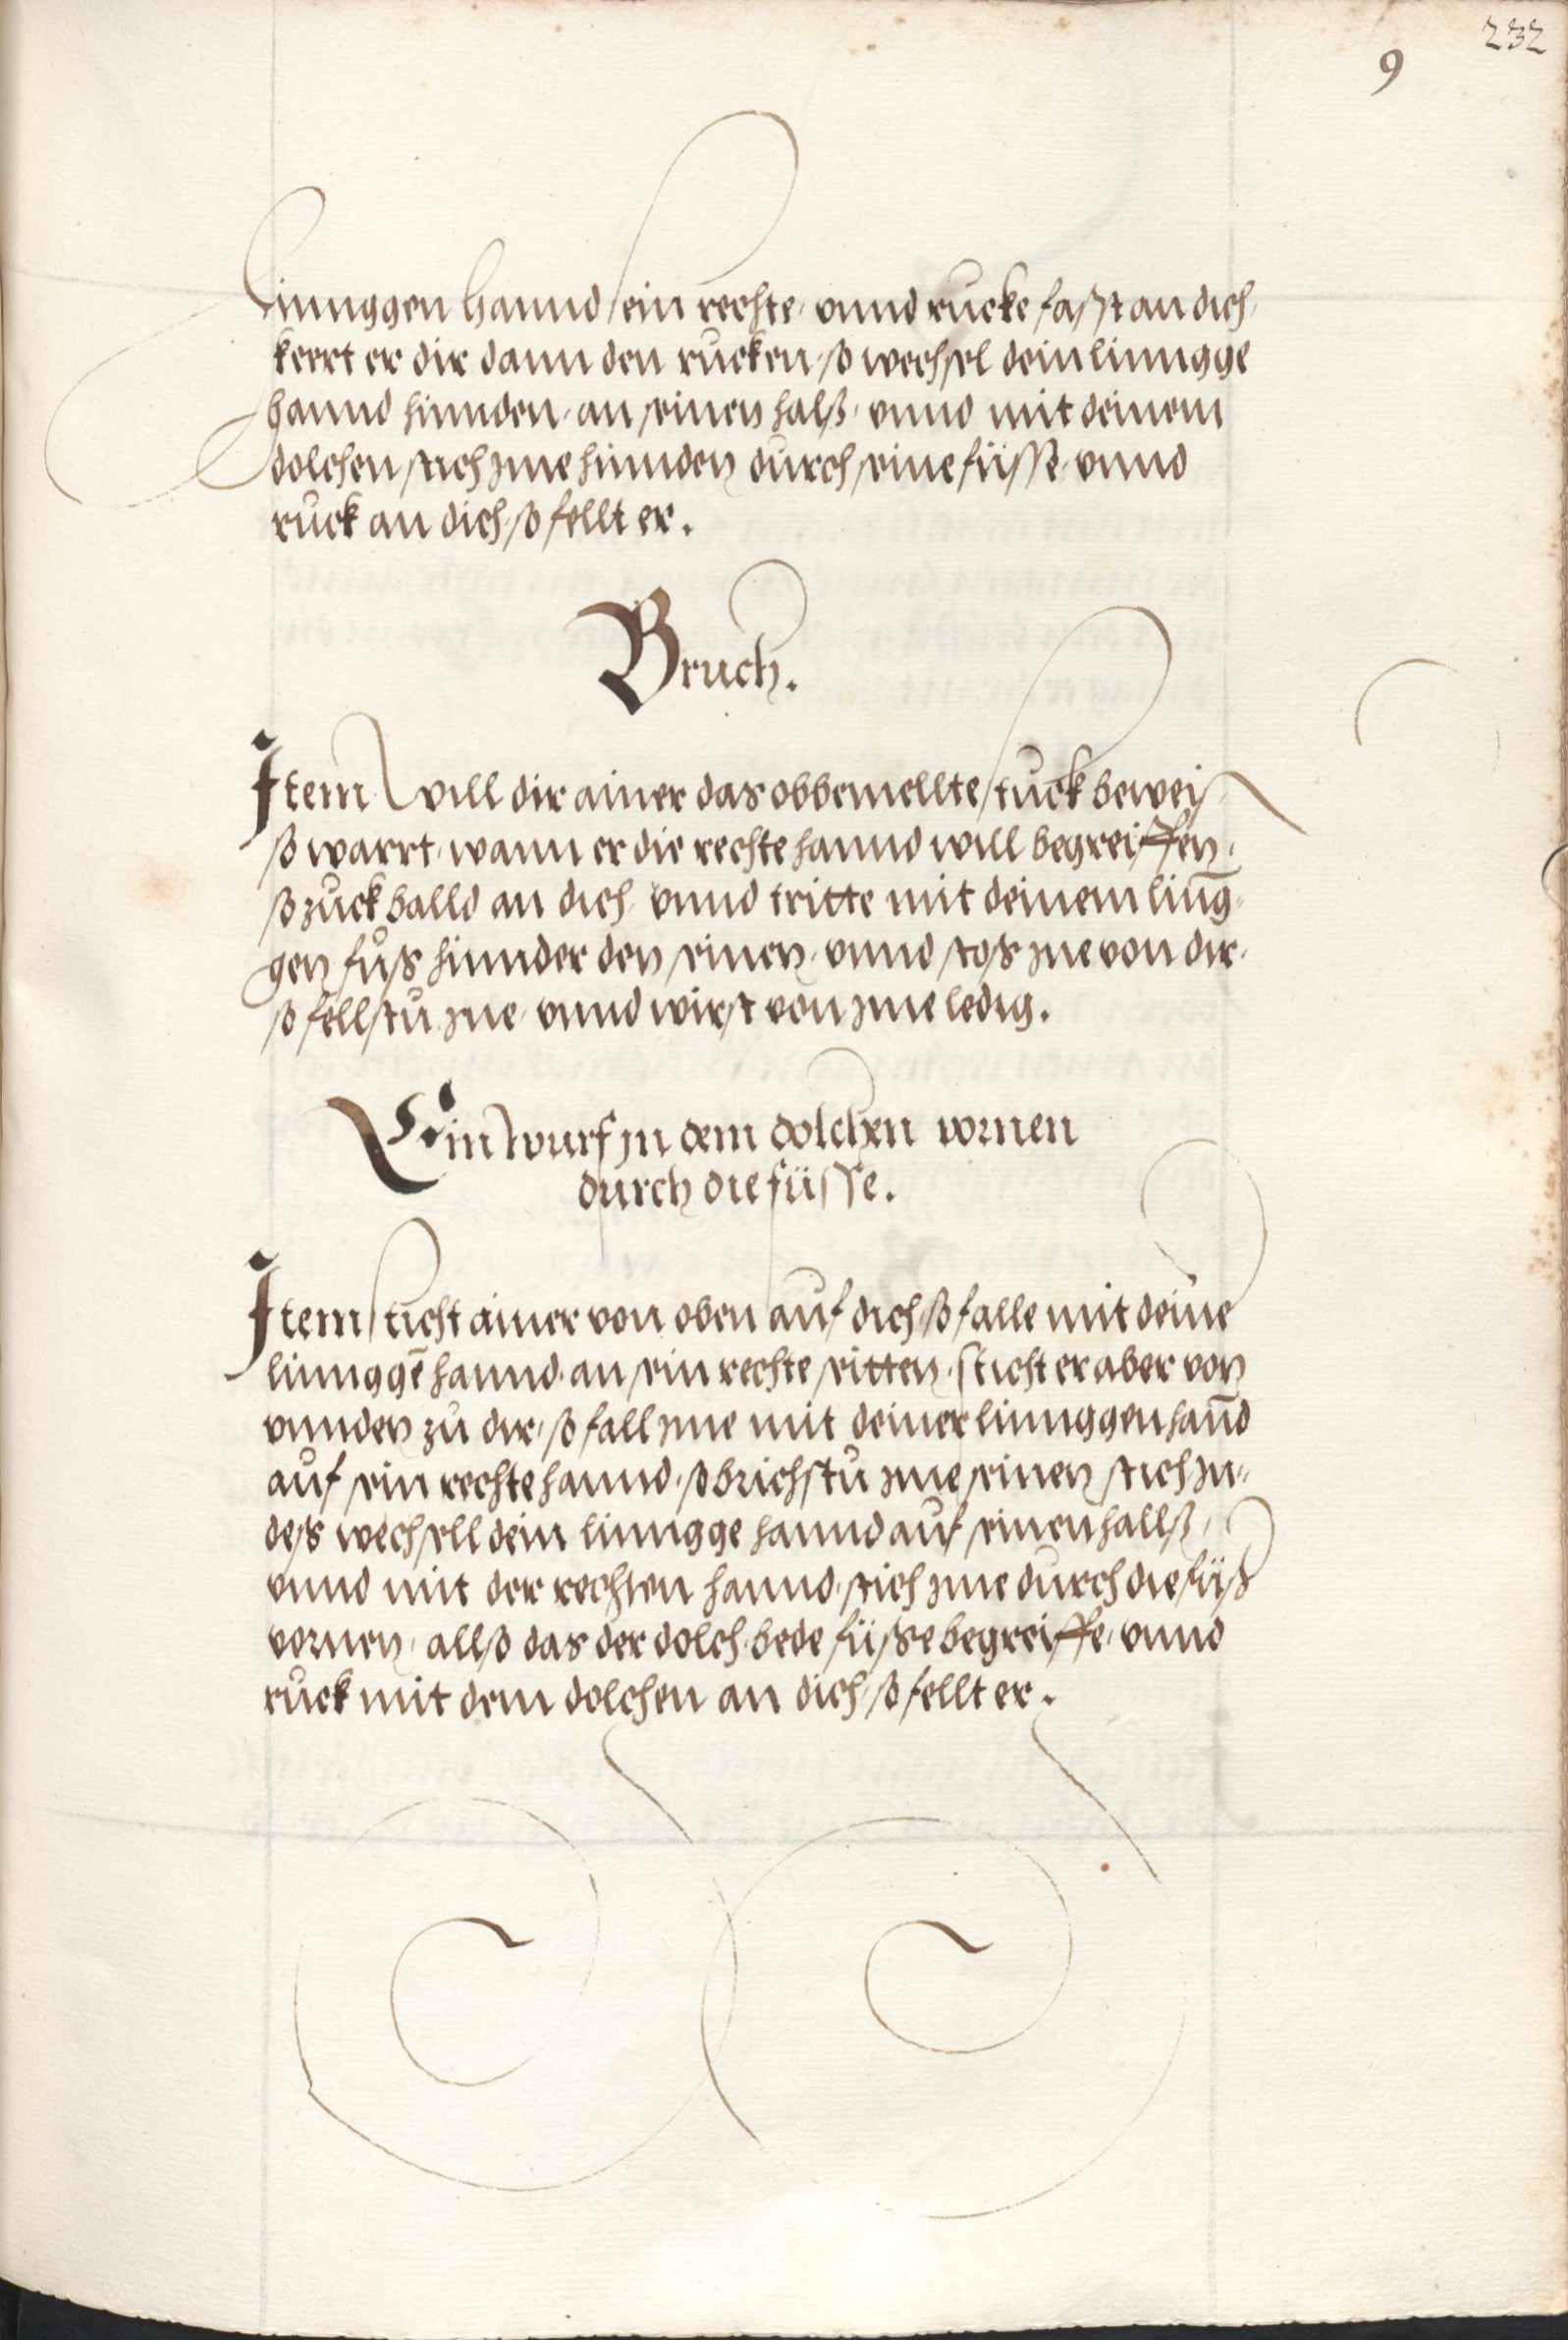 232
9
linnggen hannd sein rechte, vnnd rucke fasst an dich,
keert er dir dann den rucken, so wechsel dein linngge
hannd hinnden, an seinen halß, vnnd mit deinem
dolchen stich jme hinnden durch seine füsse, vnnd
ruck an dich, so fellt er.
Bruch.
Item will dir ainer das obbemellte stuck beweiſ
so warrt, wann er die rechte hannd will begreiffen,
so zuck balld an dich, vnnd tritte mit deinem ling̅-
gen fůſs hinnder den seinen, vnnd stoſs jne von dir,
so fellstu jne, vnnd wirst von jme ledig.
Ein wurf jn dem dolchen vornen
durch die füsse.
Item sticht ainer von oben auf dich, so falle mit deine
linnggē hannd, an sein rechte seitten, sticht er aber von
vnnden zů dir, so fall jme mit deiner linnggen han̅d
auf sein rechte hannd, so brichstu jme seinen stich, jn-
deſs wechsell dein linngge hannd auf seinen hallß,
vnnd mit der rechten hannd, stich jme durch die füß
vornen, allso das der dolch, bede füſse begreiffe, vnnd
ruck mit dem dolchen an dich, so fellt er.